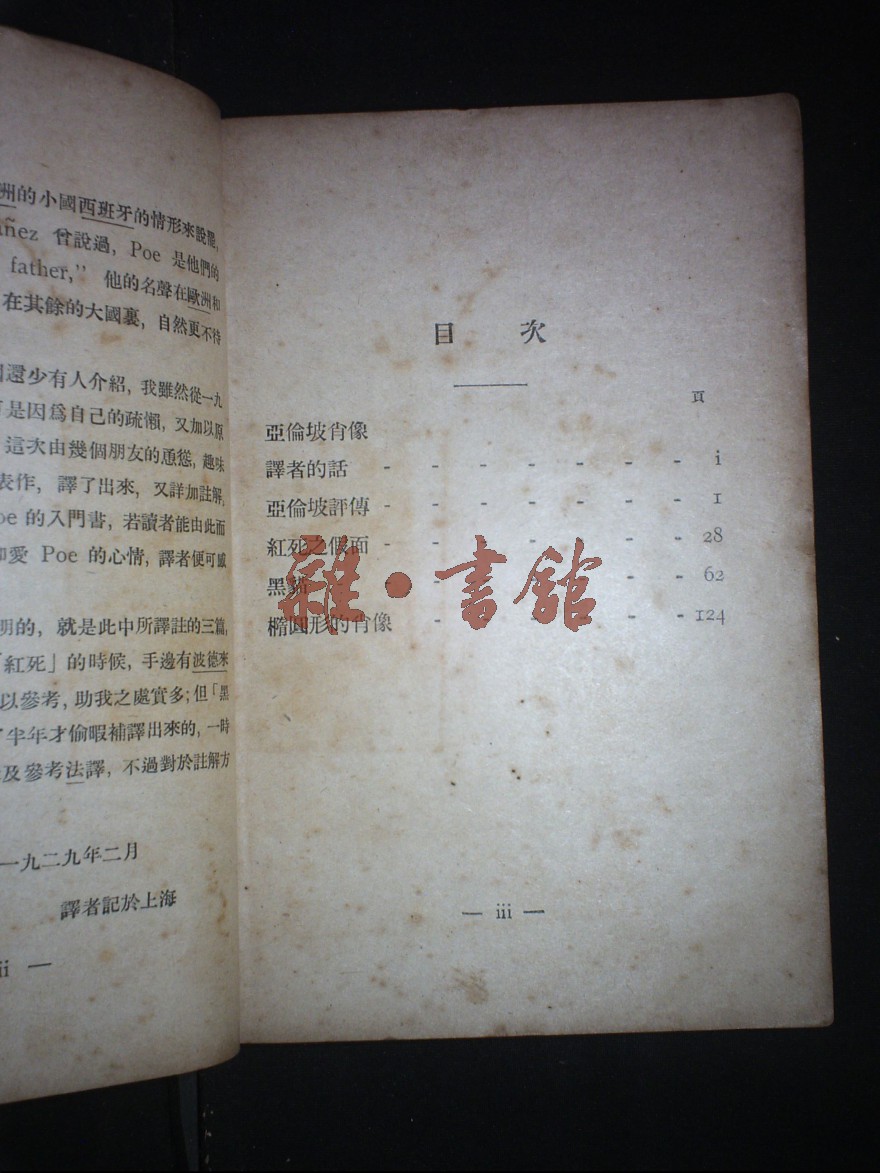 洲的小國西班牙的情形來說罷,
ñez 曾說過, Poe 是他們的
father," 他的名聲在歐洲和
在其餘的大國裏, 自然更不待
還少有人介紹, 我雖然從一九
是因爲自己的疏懶, 又加以原
這次由幾個朋友的慫慂, 趣味
表作, 譯了出來, 又詳加註解,
oe 的入門書, 若讀者能由此而
愛 Poe 的心情, 譯者便可
明的, 就是此中所譯註的三篇,
「紅死」的時候, 手邊有波德來
以參考, 助我之處實多; 但「黑
半年才偷暇補譯出來的, 一時
及參考法譯, 不過對於註解方
一九二九年二月
譯者記於上海
ii —
目 次
頁
亞倫坡肖像
譯者的話 - - - - - - - i
亞倫坡評傳 - - - - - - 1
紅死之假面 - - - - - - - 28
黑貓 - - - - 62
橢圓形的肖像 - - - - - 124
雜·書館
— iii —